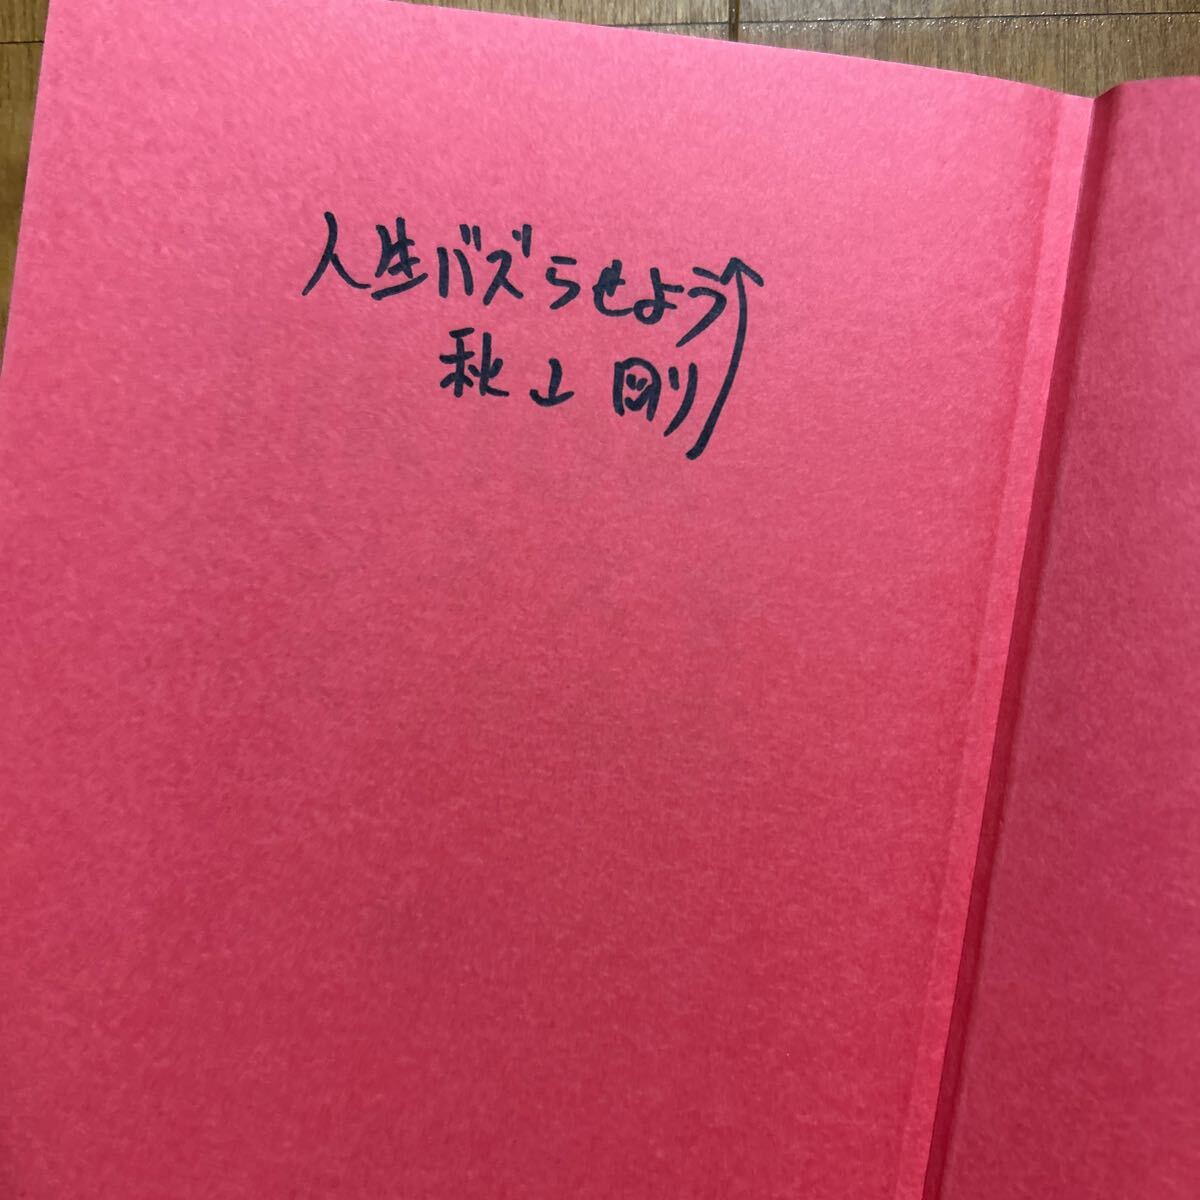 人生バズらせよう
秋山剛